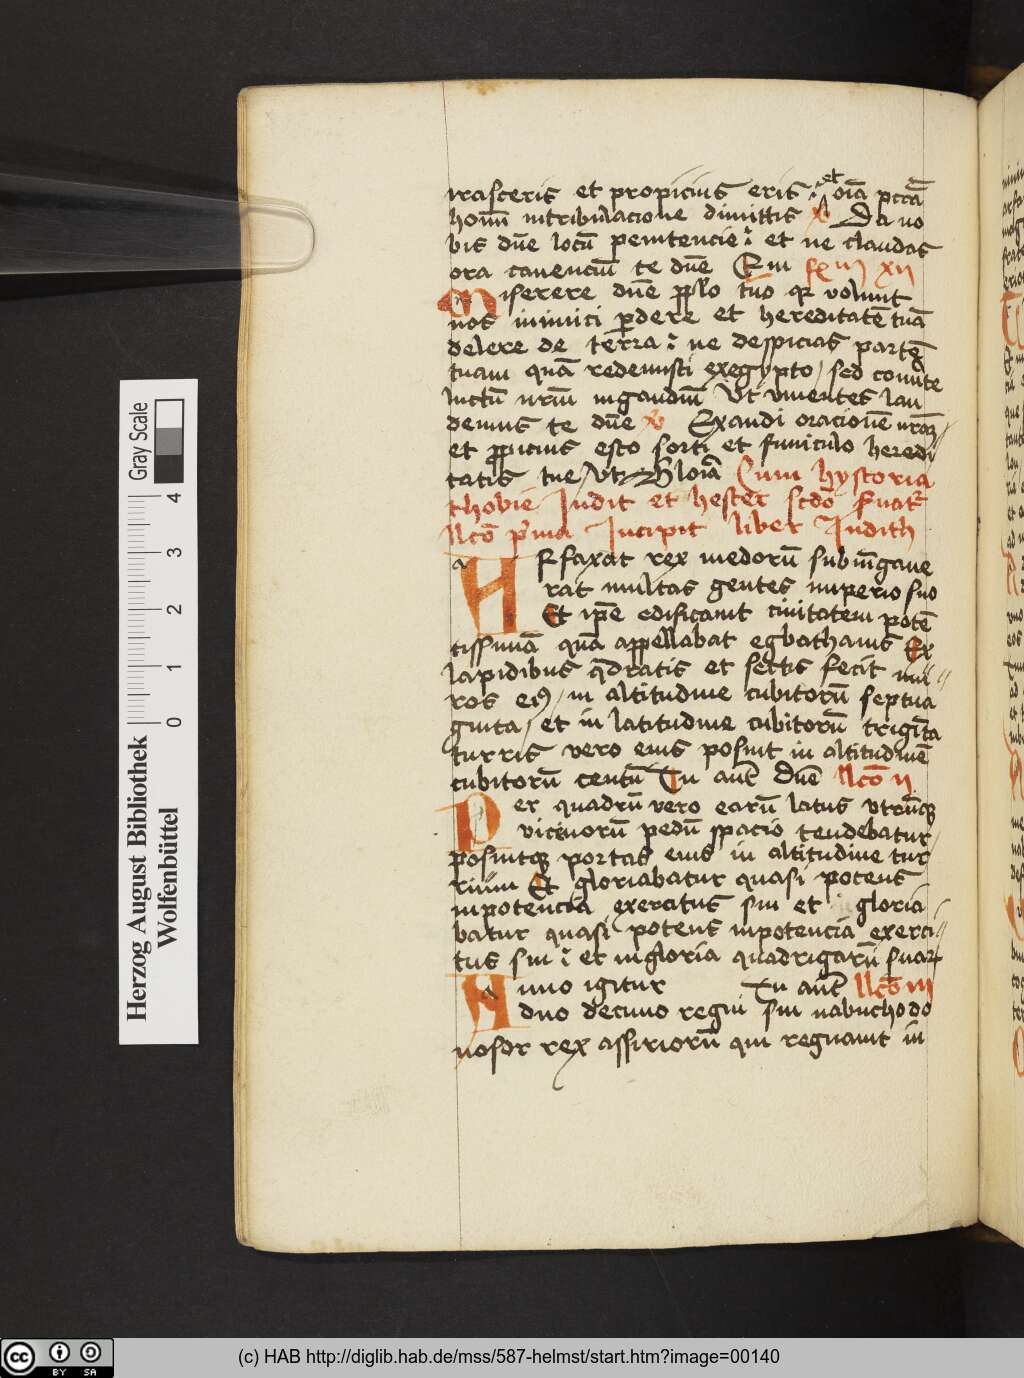 irasceris et propicius eris : et oīa pccā
hom̄ intribulacione dimittis v Da no
bis dn̄e locū penitencie : et ne claudas
ora canenciū te dn̄e Em fr m xii
Miserere dn̄e pplo tuo qr volunt
nos inimici pdere et hereditatē tuā
delere de terra : ne despicias partē
tuam quā redemisti exegypto / sed conūte
luctū nrm̄ ingaudiū Vt viuentes lau
demus te dn̄e v Exaudi oracionē nrāꝫ
et ppicius esto sorti et funiculo heredi
tatis tue / Vt Cum hystoria
thobie Judit et hester scdō
llcō pma Incipit liber Judith
ARfaxat rex medorū subiūgaue
rat multas gentes imperio suo
Et ipē edificauit ciuitatem potē
tissimā quā appellabat egbathanis Ex
lapidibus qdratis et sectis fecit mu
ros eiꝰ / in altitudine cubitorū septua
ginta / et in latitudine cubitorū trigīta
turris vero eius posuit in altitudinē
cubitorū centū Tu aut̄ dn̄e llcō ii
Per quadrū vero earū latus vtrūqꝫ
vicenorū pedū spacio tendebatur
posuitqꝫ portas eius in altitudine tur
rium Et gloriabatur quasi potens
inpotencia exercitus sui et gloria
batur quasi potens inpotencia exerci
tus sui : et ingloria quadrigarū suaꝝ
Anno igitur Tu aut̄ llcō iii
duo decimo regni sui nabuchodo
nosor rex assiriorū qui regnauit in
Herzog August Bibliothek
Wolfenbüttel
0 1 2 3 4
Gray Scale
(c) HAB http://diglib.hab.de/mss/587-helmst/start.htm?image=00140
cc BY SA